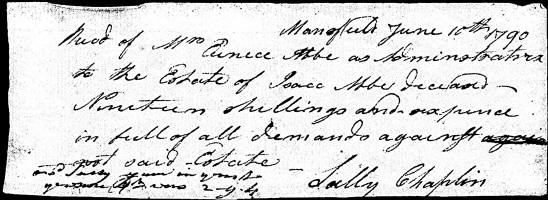 Mansfield June 10th 1790
Recd of Mrs Eunece Abbe as Adminstratrix
to the Estate of Isaac Abbe deceasd
Nineteen shillings and sixpence
in full of all demands against
said Estate
Sally Chaplin
and
was 2-9-4